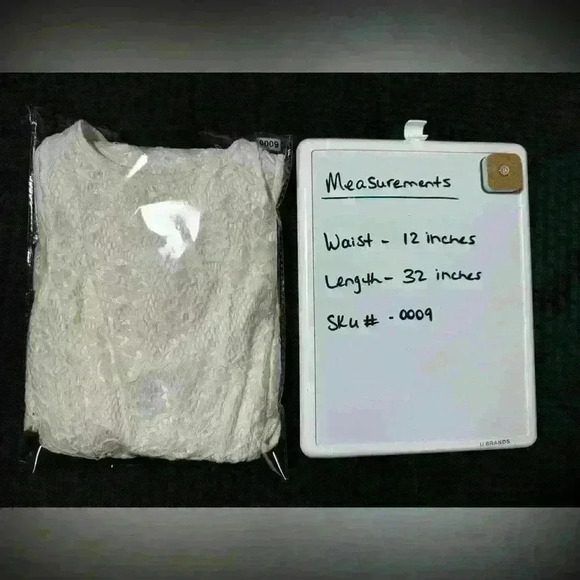 0009
Measurements
Waist - 12 inches
Length - 32 inches
SKU # - 0009
U BRANDS